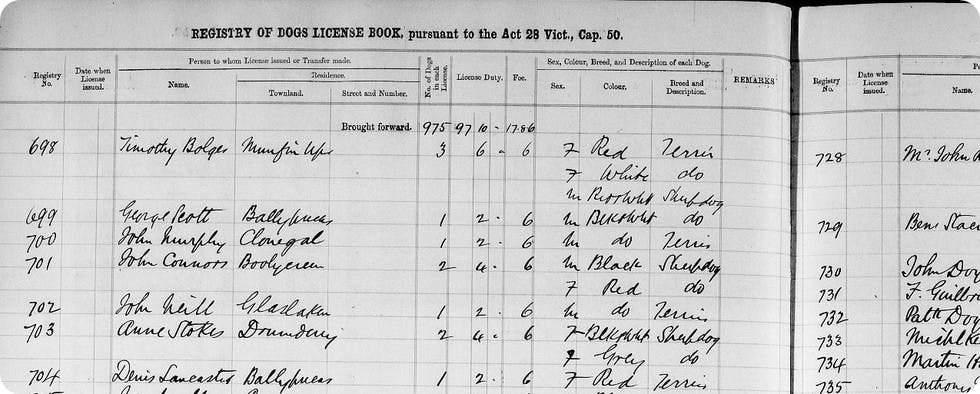 REGISTRY OF DOGS LICENSE BOOK, pursuant to the Act 28 Vict., Cap. 50.
Registry No.
Date when License issued.
Person to whom License issued or Transfer made.
Name.
Residence.
Townland.
Street and Number.
No. of Dogs in each License.
License Duty.
Fee.
Sex, Colour, Breed, and Description of each Dog.
Sex.
Colour.
Breed and Description.
REMARKS
Registry No.
Date when License issued.
Name.
Brought forward. 975 97 10 - 17.8.6
698 Timothy Bolger 3 6 - 6 F Red Terrier
F White do
m Red&Wht Sheepdog
699 George Scott 1 2 - 6 m Blk&Wht do
700 John Murphy Clonegal 1 2 - 6 m do Terrier
701 John Connors 2 4 - 6 m Black Sheepdog
F Red do
702 John Neill Glaslacken 1 2 - 6 m do Terrier
703 Anne Stokes 2 4 - 6 F Blk&Wht Sheepdog
F Grey do
704 Denis Lancaster 1 2 - 6 F Red Terrier
728 Mr. John
729
730 John
731 F.
732 Patk
733
734 Martin
735 Anthony